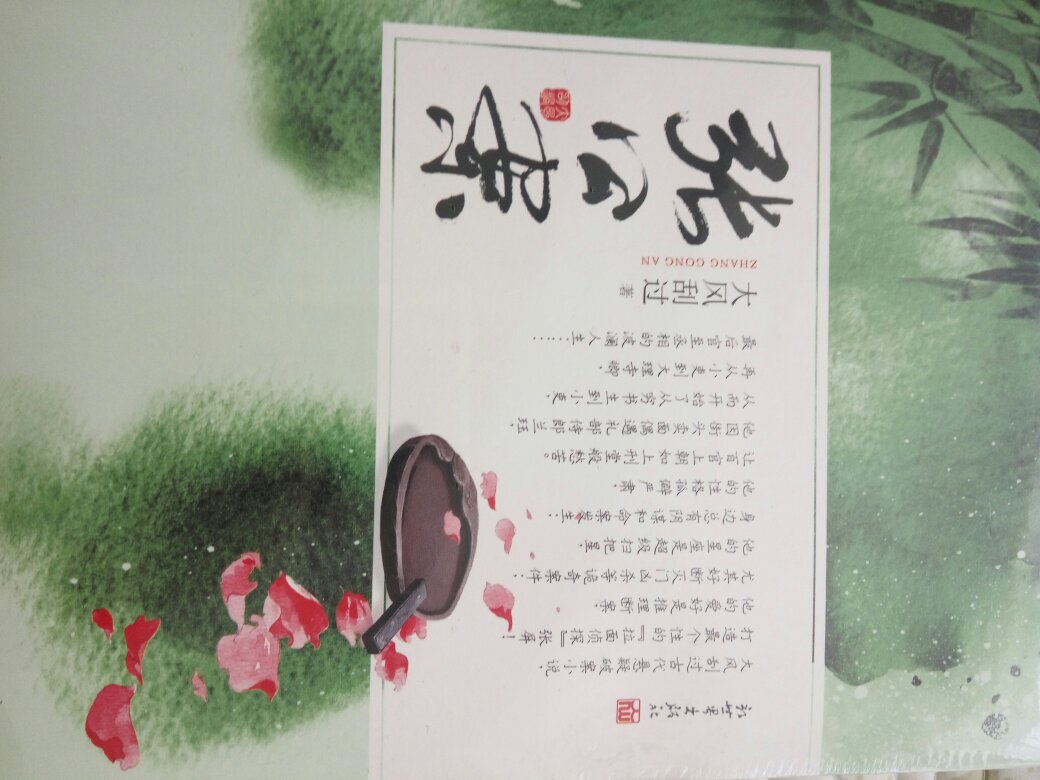 张公案
ZHANG GONG AN
大风刮过 著
大风刮过古代悬疑破案小说，
打造最个性的『拉面侦探』张屏！
他的爱好是推理断案，
尤其好断灭门凶杀等诡奇案件；
他的星座是超级扫把星，
身边总有阴谋和命案发生；
他的性格孤僻严肃，
让百官上朝如上刑堂般愁苦。
他因街头卖面偶遇礼部侍郎兰珏，
从而开始了从穷书生到小吏，
再从小吏到大理寺卿，
最后官至丞相的波澜人生……
新世界出版社